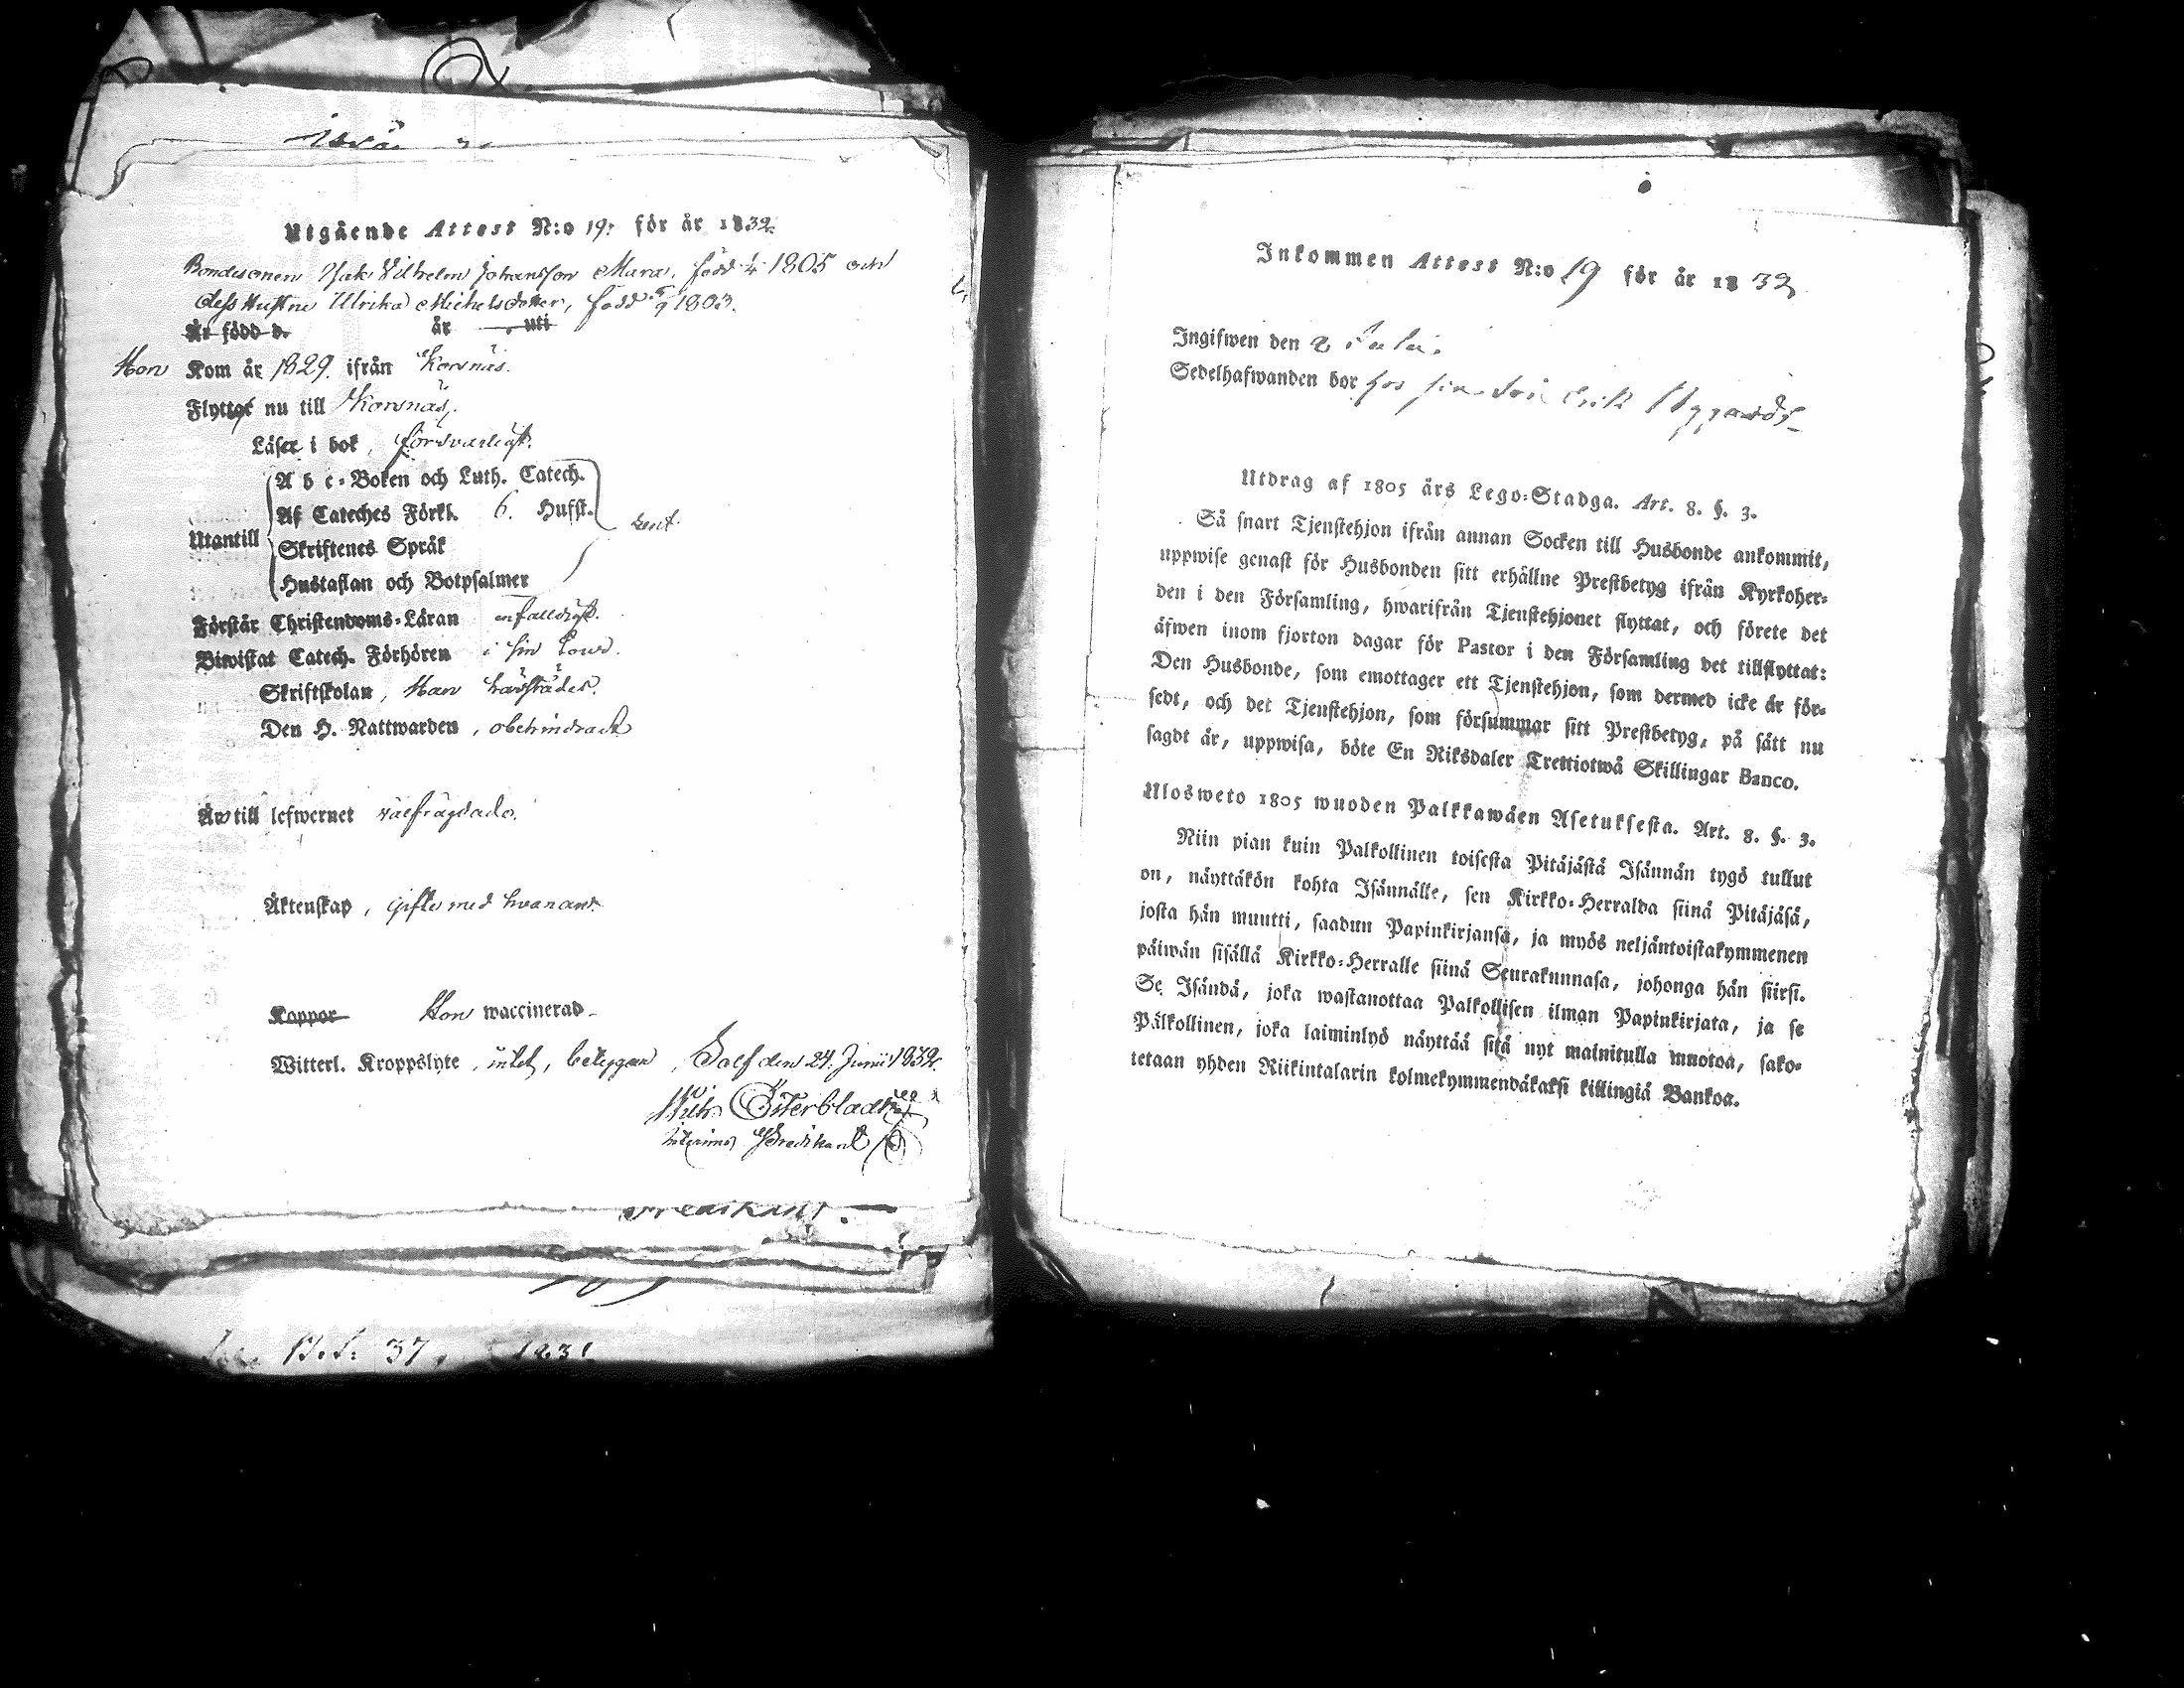 Utgående Attest N:o 19: för år 1832.
Bondesonen Isak Wilhelm Johansson Mara, född 1805 och
dess Hustru Ulrika Michelsdotter, född 1803.
Är född d. år uti
Hon Kom år 1829. ifrån Korsnäs.
Flytta nu till Korsnäs.
Läser i bok, försvarligt.
A b c-Boken och Luth. Catech.
Af Cateches Förkl. 6. Hufst.
Utantill
Skriftenes Språk
Hustaflan och Botpsalmer
Förstår Christendoms-Läran enfalldigt.
Biwistat Catech. Förhören i sin
Skriftskolan, Han
Den H. Nattwarden, obehindradt
Äro till lefwernet välfrägdade.
Äktenskap, gifte med hvarandr.
Koppor Hon waccinerad
Witterl. Kroppslyte, intet, betygar, Solf den 24. Junii 1832.
Wilh. Österbladh
Predikant
Predikant.
37. 1831
Inkommen Attest N:o 19 för år 1832
Ingifwen den 2 Juli.
Sedelhafwanden bor hos Erik
Utdrag af 1805 års Lego-Stadga. Art. 8. §. 3.
Så snart Tjenstehjon ifrån annan Socken till Husbonde ankommit,
uppwise genast för Husbonden sitt erhållne Prestbetyg ifrån Kyrkoher-
den i den Församling, hwarifrån Tjenstehjonet flyttat, och förete det
äfwen inom fjorton dagar för Pastor i den Församling det tillflyttat:
Den Husbonde, som emottager ett Tjenstehjon, som dermed icke är för-
sedt, och det Tjenstehjon, som försummar sitt Prestbetyg, på sätt nu
sagdt är, uppwisa, böte En Riksdaler Trettiotwå Skillingar Banco.
Ulosweto 1805 wuoden Palkkawäen Asetuksesta. Art. 8. §. 3.
Niin pian kuin Palkollinen toisesta Pitäjästä Isännän tygö tullut
on, näyttäkön kohta Isännälle, sen Kirkko-Herralda siinä Pitäjäsä,
josta hän muutti, saadun Papinkirjansa, ja myös neljäntoistakymmenen
päiwän sisällä Kirkko-Herralle siinä Seurakunnasa, johonga hän siirsi.
Se Isändä, joka wastanottaa Palkollisen ilman Papinkirjata, ja se
Palkollinen, joka laiminlyö näyttää sitä nyt mainitulla muotoa, sako-
tetaan yhden Riikintalarin kolmekymmendäkaksi killingiä Bankoa.